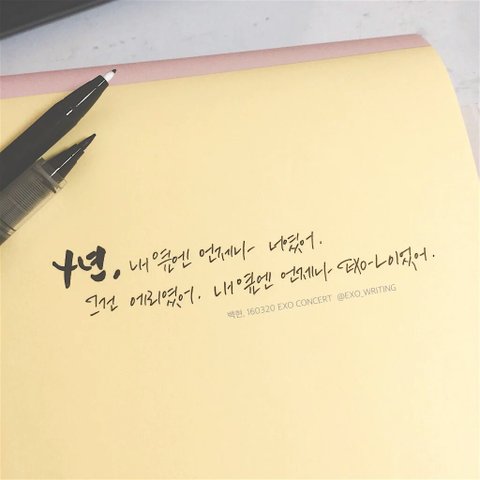 4년. 내 옆엔 언제나 너였어.
그건 에리였어. 내 옆엔 언제나 EXO-L이었어.
백현, 160320 EXO CONCERT @EXO_WRITING